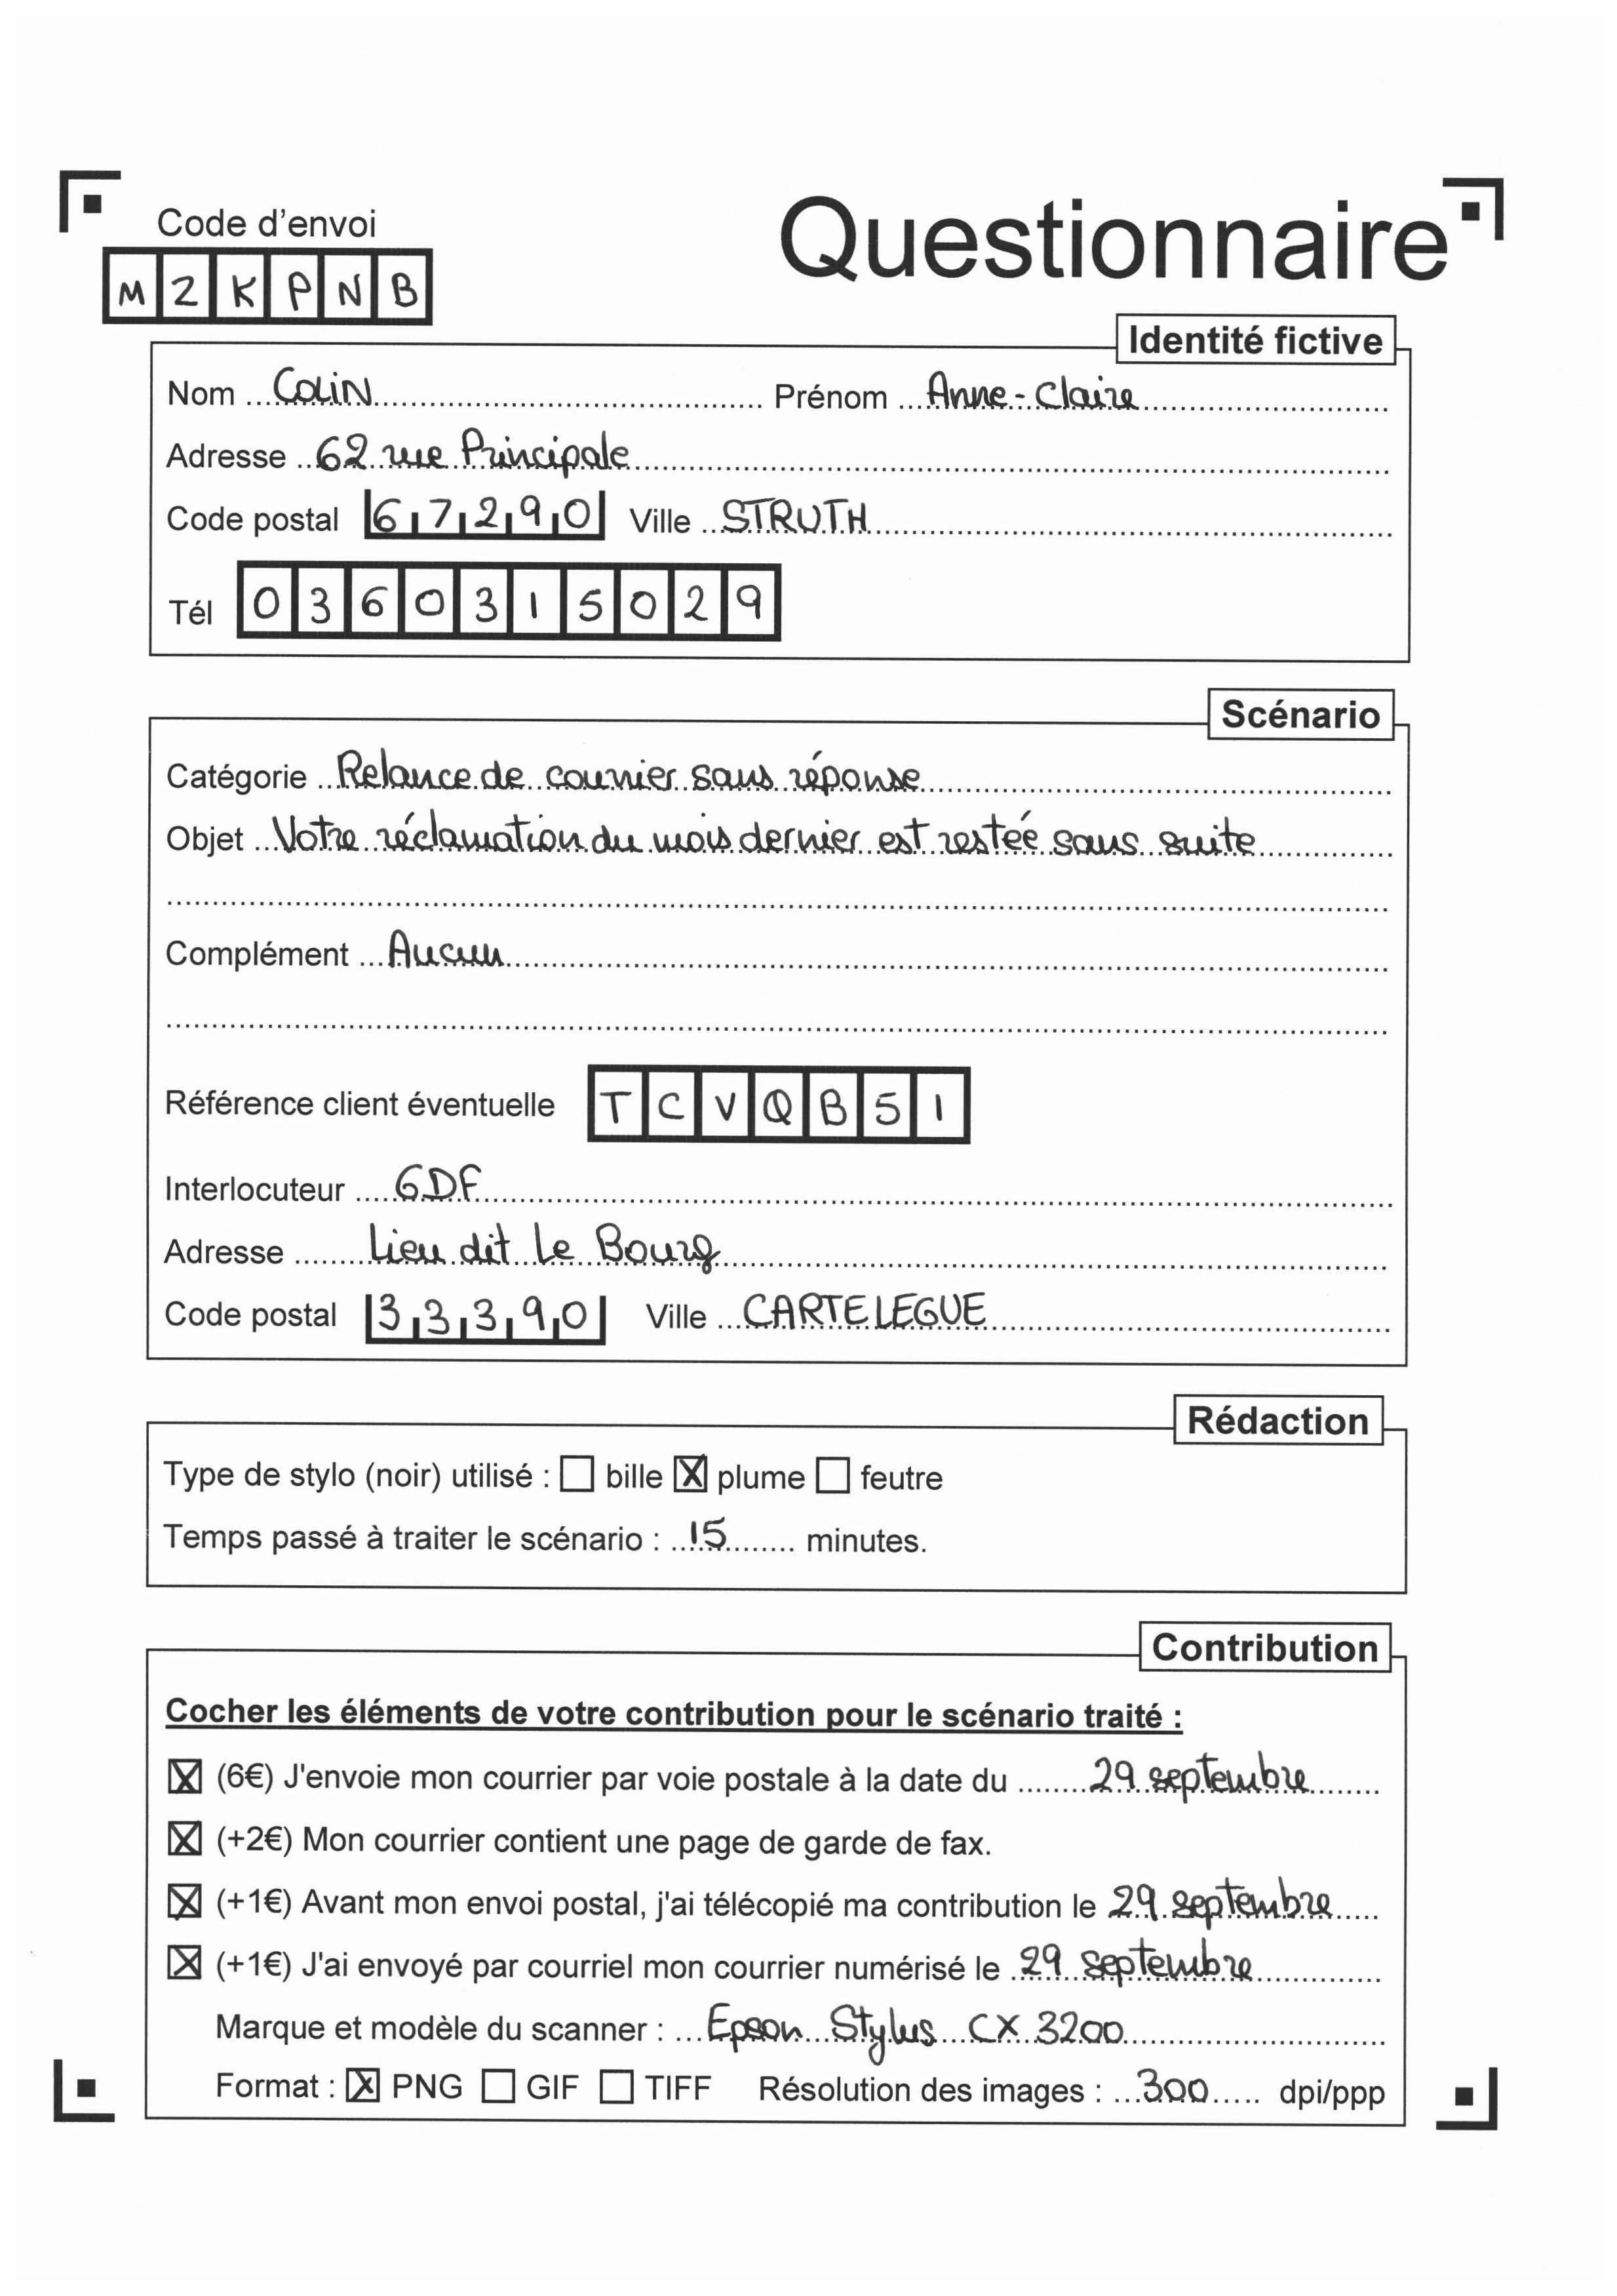 Code d'envoi
Questionnaire
M2KPNB
Identité fictive
Nom Colin Prénom Anne-Claire
Adresse 62 rue Principale
Code postal 67290 Ville STRUTH
Tél 0360315029
Scénario
Catégorie Relance de courrier sans réponse
Objet Votre réclamation du mois dernier est restée sans suite
Complément Aucun
Référence client éventuelle TCVQB51
Interlocuteur GDF
Adresse Lieu dit Le Bourg
Code postal 33390 Ville CARTELEGUE
Rédaction
Type de stylo (noir) utilisé : ☐ bille ☒ plume ☐ feutre
Temps passé à traiter le scénario : 15 minutes.
Contribution
Cocher les éléments de votre contribution pour le scénario traité :
☒ (6€) J'envoie mon courrier par voie postale à la date du 29 septembre
☒ (+2€) Mon courrier contient une page de garde de fax.
☒ (+1€) Avant mon envoi postal, j'ai télécopié ma contribution le 29 septembre
☒ (+1€) J'ai envoyé par courriel mon courrier numérisé le 29 septembre
Marque et modèle du scanner : Epson Stylus CX 3200
Format : ☒ PNG ☐ GIF ☐ TIFF Résolution des images : 300 dpi/ppp